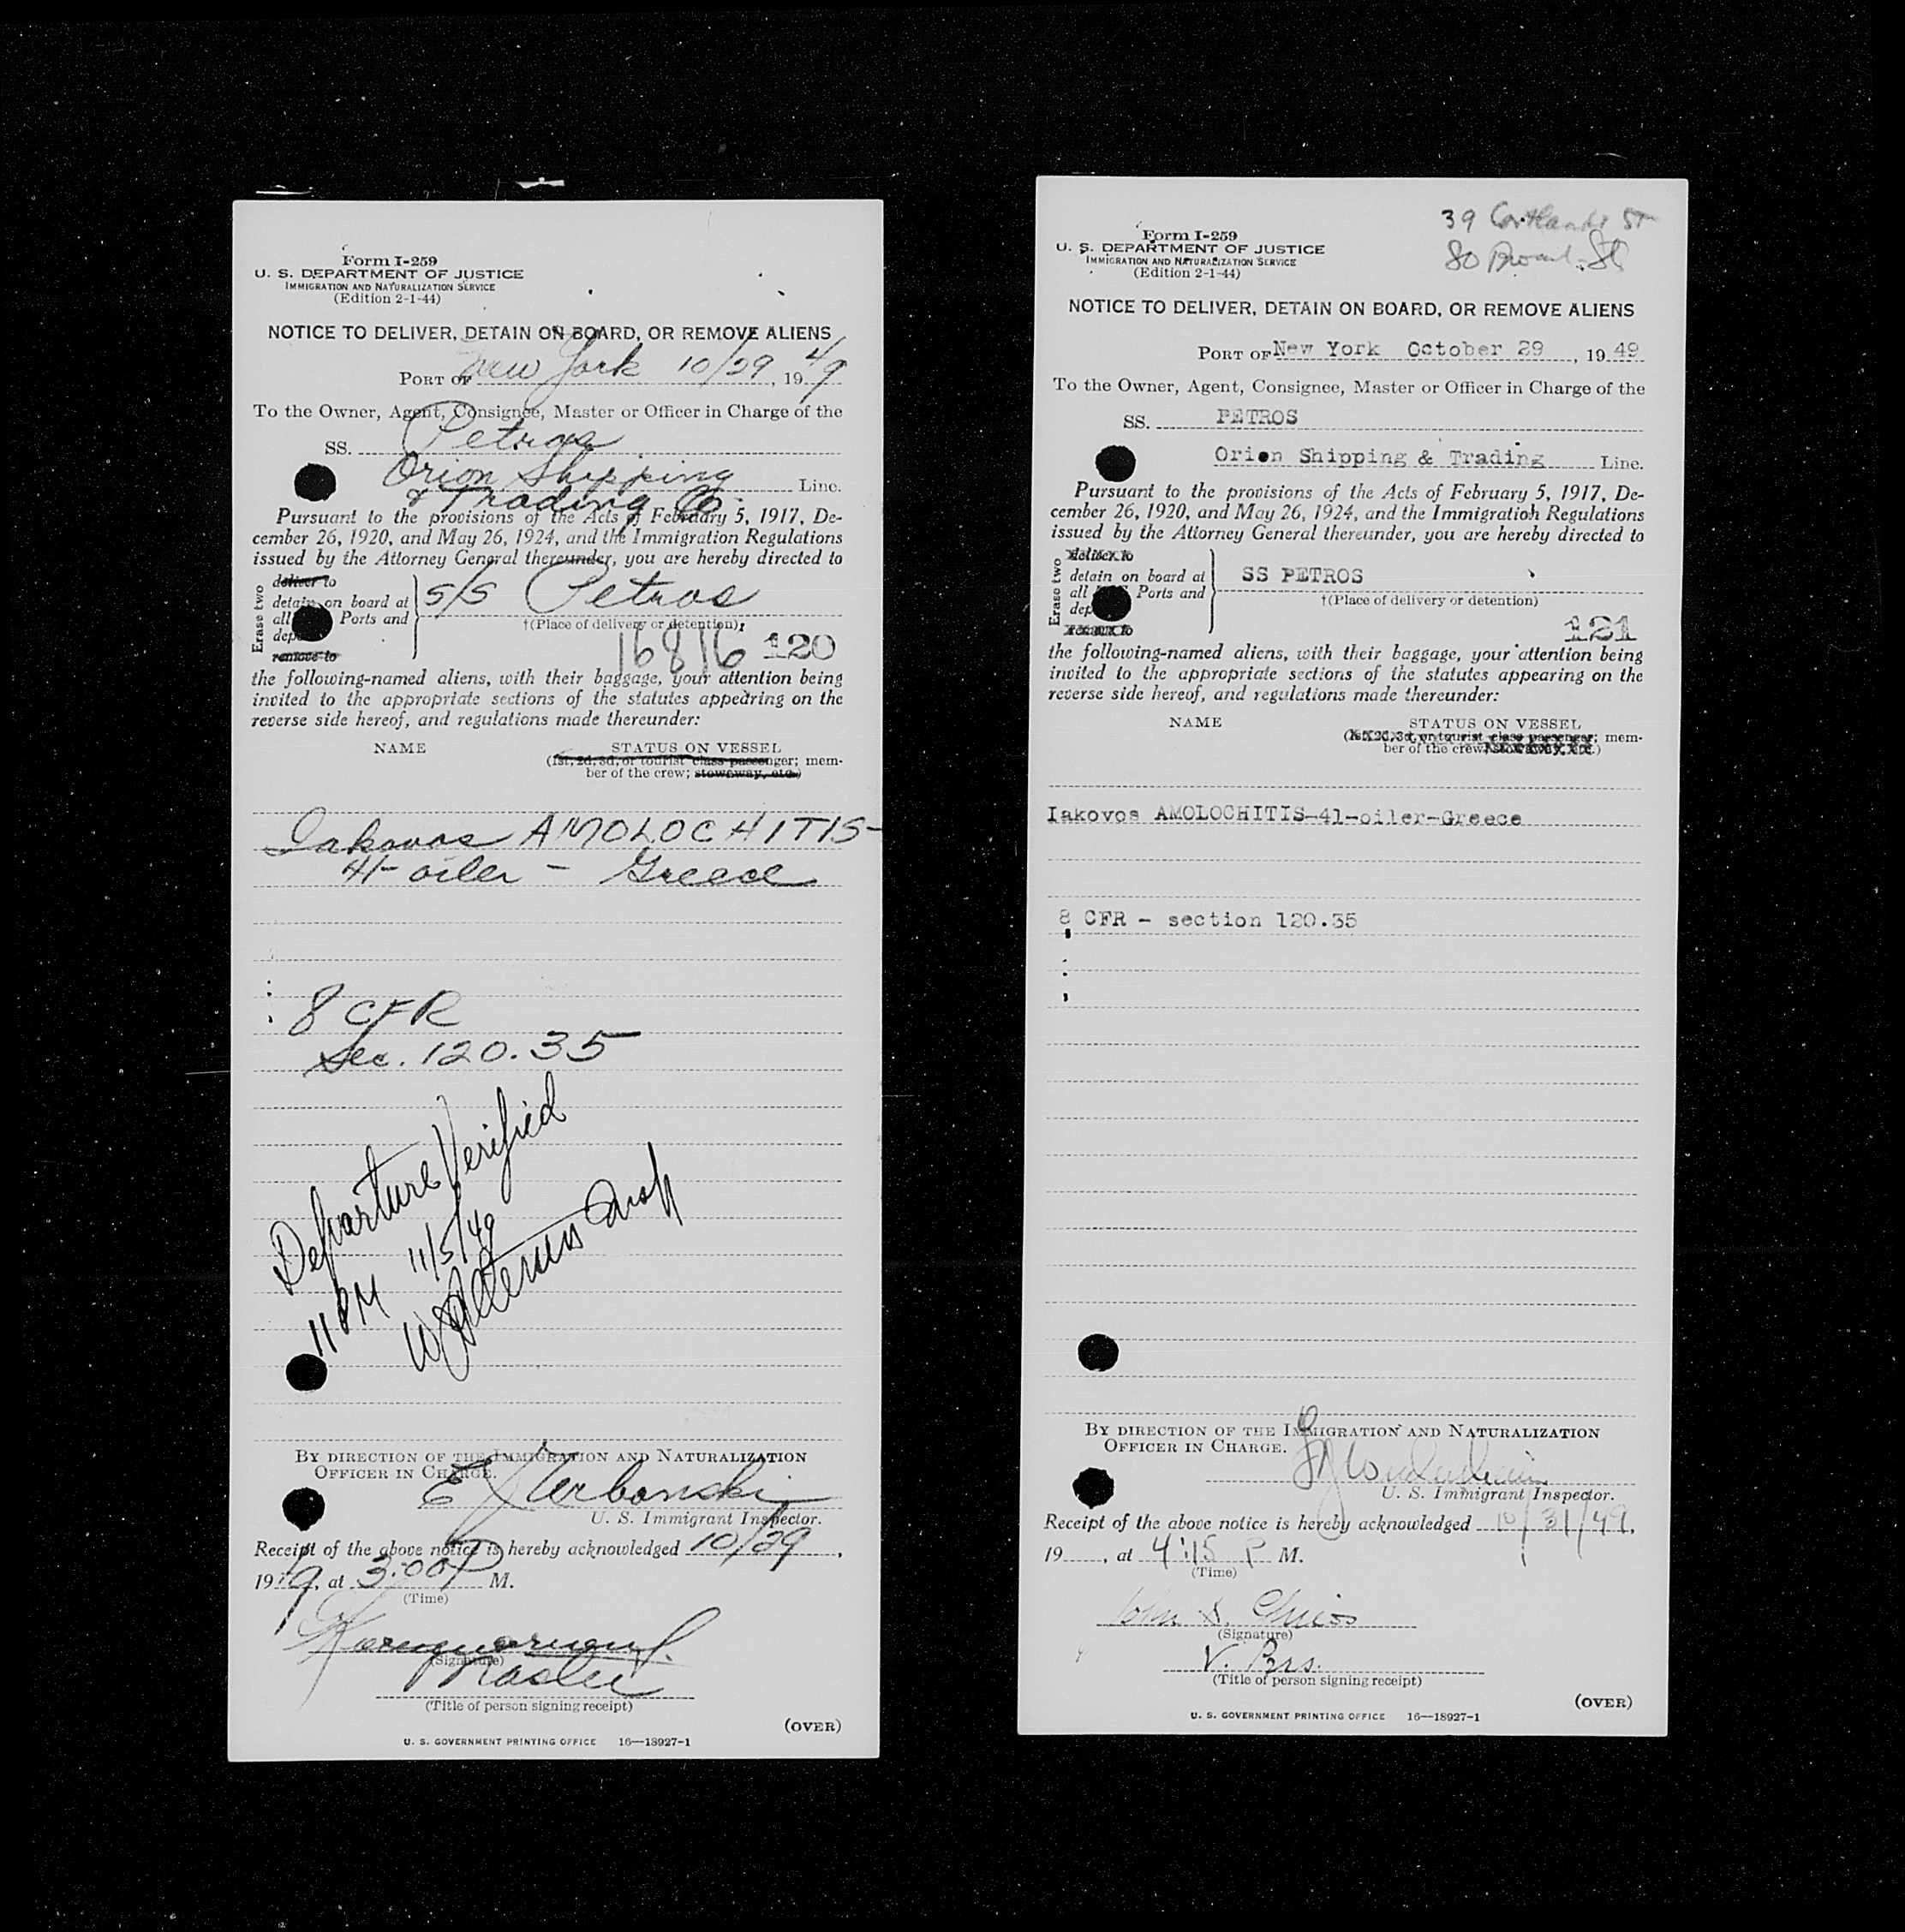 Form I-259
U. S. DEPARTMENT OF JUSTICE
IMMIGRATION AND NATURALIZATION SERVICE
(Edition 2-1-44)
NOTICE TO DELIVER, DETAIN ON BOARD, OR REMOVE ALIENS
PORT OF New York 10/29, 19 49
To the Owner, Agent, Consignee, Master or Officer in Charge of the
SS. Petros
Orion Shipping Line.
& Trading Co.
Pursuant to the provisions of the Acts of February 5, 1917, De-
cember 26, 1920, and May 26, 1924, and the Immigration Regulations
issued by the Attorney General thereunder, you are hereby directed to
Erase two
deliver to
detain on board at
all Ports and
dep
remove to
S/S Petros
†(Place of delivery or detention),
16816 120
the following-named aliens, with their baggage, your attention being
invited to the appropriate sections of the statutes appearing on the
reverse side hereof, and regulations made thereunder:
NAME STATUS ON VESSEL
(1st, 2d, 3d, or tourist class passenger; mem-
ber of the crew; stowaway, etc.)
Iakovos AMOLOCHITIS-
41-oiler - Greece
8 CFR
Sec. 120.35
Departure Verified
11 PM 11/5/49
BY DIRECTION OF THE IMMIGRATION AND NATURALIZATION
OFFICER IN CHARGE.
E J Urbanski
U. S. Immigrant Inspector.
Receipt of the above notice is hereby acknowledged 10/29,
1949, at 3:00 P M.
(Time)
(Signature)
Master
(Title of person signing receipt)
(OVER)
U. S. GOVERNMENT PRINTING OFFICE 16—18927-1
39 Cortlandt St
80 Broad St
Form I-259
U. S. DEPARTMENT OF JUSTICE
IMMIGRATION AND NATURALIZATION SERVICE
(Edition 2-1-44)
NOTICE TO DELIVER, DETAIN ON BOARD, OR REMOVE ALIENS
PORT OF New York October 29, 19 49.
To the Owner, Agent, Consignee, Master or Officer in Charge of the
SS. PETROS
Orion Shipping & Trading Line.
Pursuant to the provisions of the Acts of February 5, 1917, De-
cember 26, 1920, and May 26, 1924, and the Immigration Regulations
issued by the Attorney General thereunder, you are hereby directed to
Erase two
deliver to
detain on board at
all Ports and
dep
remove to
SS PETROS
†(Place of delivery or detention)
121
the following-named aliens, with their baggage, your attention being
invited to the appropriate sections of the statutes appearing on the
reverse side hereof, and regulations made thereunder:
NAME STATUS ON VESSEL
(1st, 2d, 3d, or tourist class passenger; mem-
ber of the crew; stowaway, etc.)
Iakovos AMOLOCHITIS-41-oiler-Greece
8 CFR - section 120.35
BY DIRECTION OF THE IMMIGRATION AND NATURALIZATION
OFFICER IN CHARGE.
U. S. Immigrant Inspector.
Receipt of the above notice is hereby acknowledged 10/31/49,
19 , at 4:15 P M.
(Time)
John
(Signature)
V. Prs.
(Title of person signing receipt)
(OVER)
U. S. GOVERNMENT PRINTING OFFICE 16—18927-1